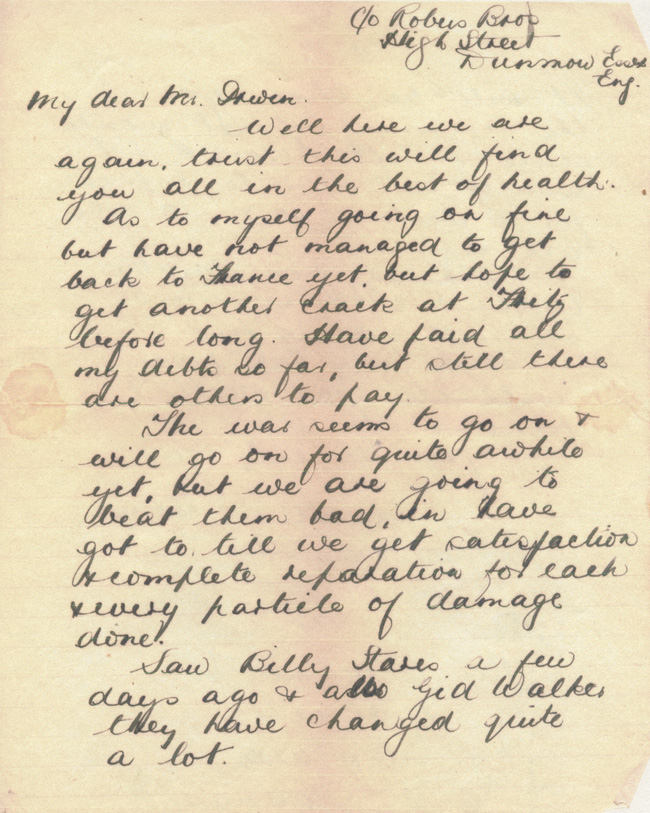 c/o Robus Bros
High Street
Dunmow Essex
Eng.
My dear Mr. Irwin.
Well here we are
again, trust this will find
you all in the best of health.
As to myself going on fine
but have not managed to get
back to France yet, but hope to
get another crack at Fritz
before long. Have paid all
my debts so far, but still there
are others to pay.
The war seems to go on &
will go on for quite awhile
yet, but we are going to
beat them bad, in have
got to, till we get satisfaction
& complete reparation for each
& every particle of damage
done.
Saw Billy Stares a few
days ago & also Gid Walker
they have changed quite
a lot.